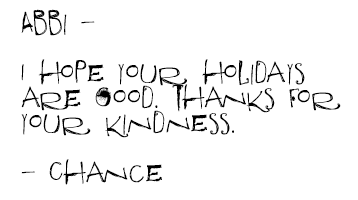 ABBI –
I HOPE YOUR HOLIDAYS
ARE GOOD. THANKS FOR
YOUR KINDNESS.
– CHANCE